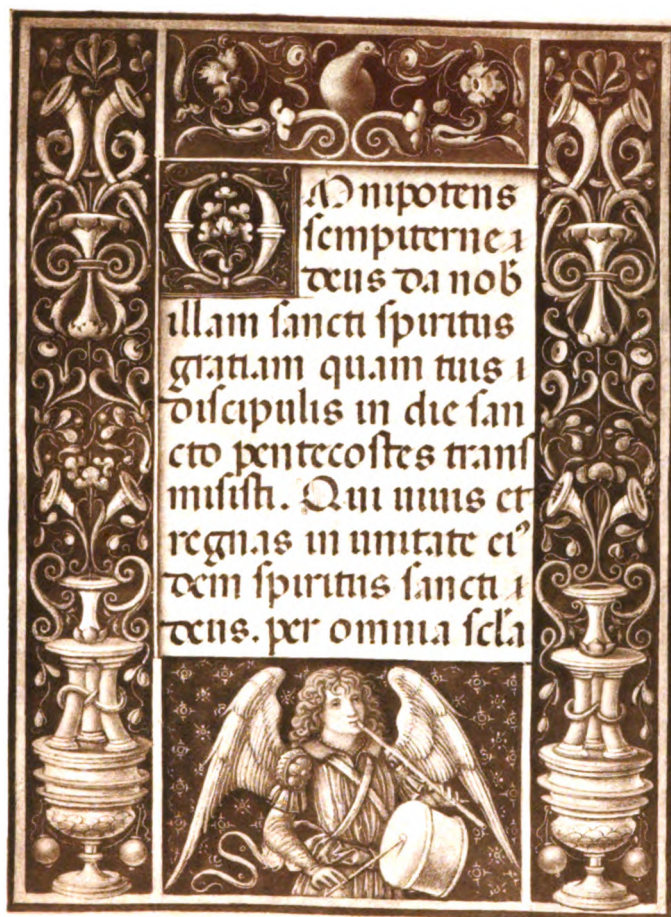 OMnipotens
sempiterne
deus da nob̄
illam sancti spiritus
gratiam quam tuis
discipulis in die san
cto pentecostes trans
misisti. Qui uiuis et
regnas in unitate eiꝰ
dem spiritus sancti
deus. per omnia scl̄a